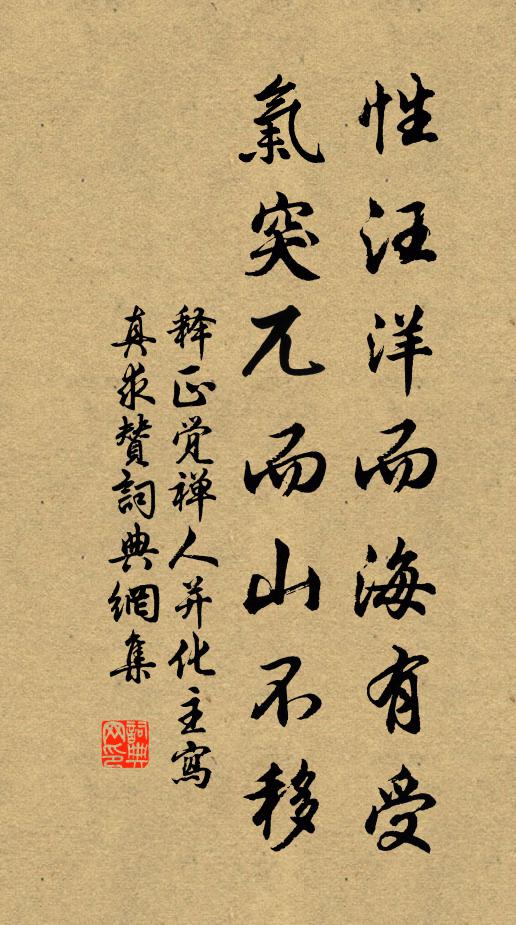 性汪洋而海有受
氣突兀而山不移
释正觉禅人并化主寫
真求赞詞典網集
詞典网印